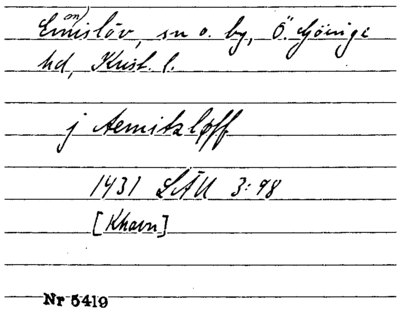 Emislöv, sn o. by, Ö. Göinge
hd, Krist. l.
j Aemitzløff
1431 LÄU 3:98
[Khavn]
Nr 5419